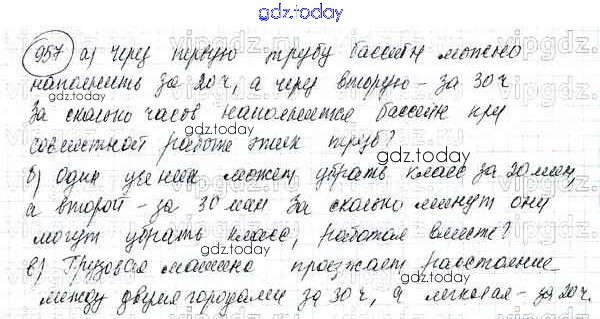 gdz.today
957 а) через первую трубу бассейн можно
наполнить за 20ч, а через вторую - за 30ч
За сколько часов наполнится бассейн при
совместной работе этих труб?
gdz.today
б) один ученик может убрать класс за 20 мин,
а второй - за 30 мин За сколько минут они
могут убрать класс, работая вместе?
gdz.today
в) Грузовая машина проезжает расстояние
между двумя городами за 30ч, а легковая - за 20ч.
gdz.today